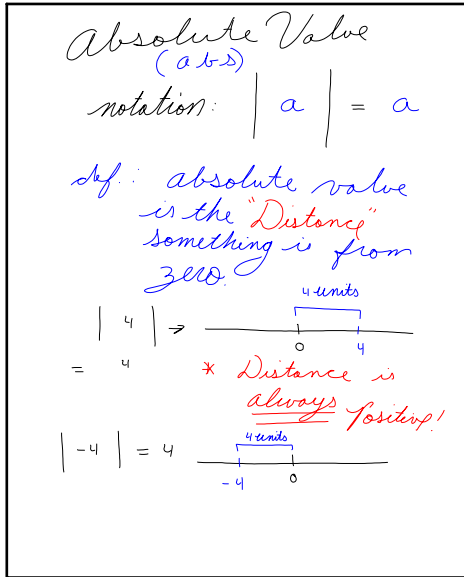 Absolute Value
(abs)
notation: | a | = a
def.: absolute value
is the "Distance"
something is from
zero.
4 units
| 4 | →
0 4
= 4
* Distance is
always Positive!
|-4| = 4
4 units
-4 0